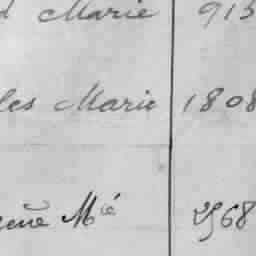 d Marie 915
les Marie 1808
gène Mié 2568